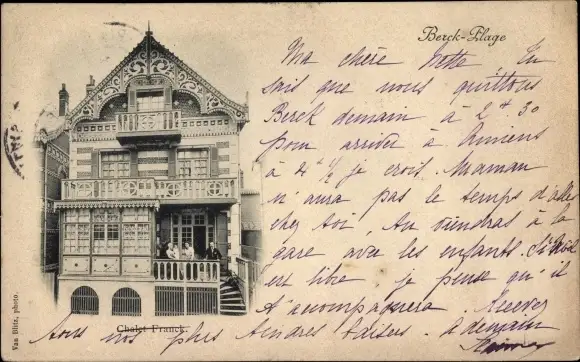 Berck-Plage
Ma chère Nette. Tu
sais que nous quittons
Berck demain à 2h 30
pour arriver à Amiens
à 4h ½ je crois. Maman
n'aura pas le temps d'aller
chez toi, tu viendras à la
gare avec les enfants. Si
est libre je pense qu'il
t'accompagnera. Recevez
tous nos plus tendres baisers. à demain
Chalet Franck.
Van Blitz, photo.